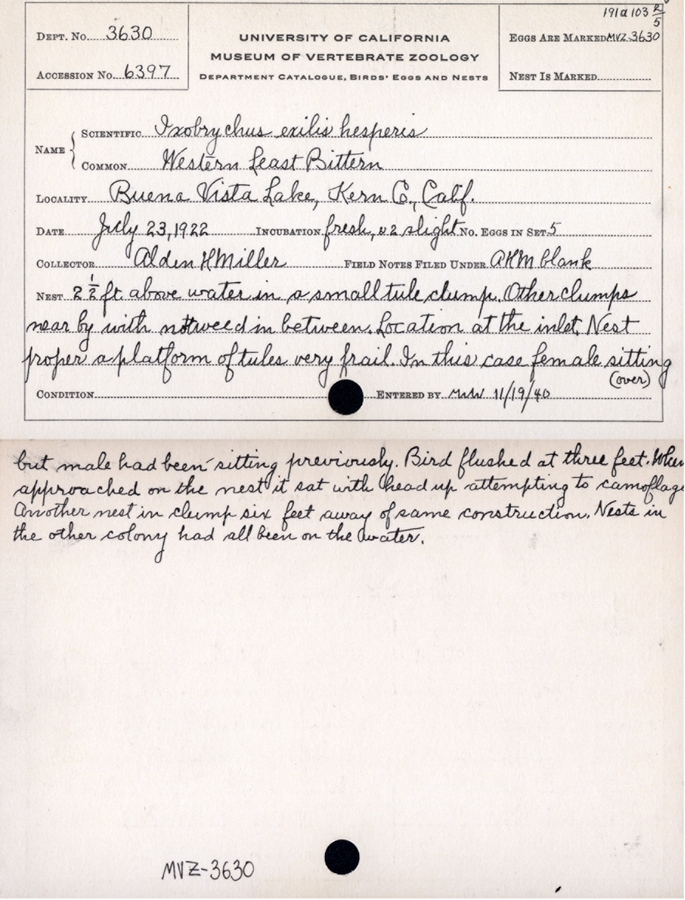 191a 103 R/5
DEPT. NO. 3630
UNIVERSITY OF CALIFORNIA
EGGS ARE MARKED MVZ-3630
MUSEUM OF VERTEBRATE ZOOLOGY
ACCESSION NO. 6397
DEPARTMENT CATALOGUE, BIRDS' EGGS AND NESTS
NEST IS MARKED
NAME { SCIENTIFIC Ixobrychus exilis hesperis
COMMON Western Least Bittern
LOCALITY Buena Vista Lake, Kern Co., Calif.
DATE July 23, 1922 INCUBATION fresh, 2 slight NO. EGGS IN SET 5
COLLECTOR Alden H Miller FIELD NOTES FILED UNDER AHM blank
NEST 2 1/2 ft above water in a small tule clump. Other clumps
near by with in between. Location at the inlet. Nest
proper a platform of tules very frail. In this case female sitting
(over)
CONDITION ENTERED BY 11/19/40
but male had been sitting previously. Bird flushed at three feet. When
approached on the nest it sat with head up attempting to camoflage
Another nest in clump six feet away of same construction. Nests in
the other colony had all been on the water.
MVZ-3630